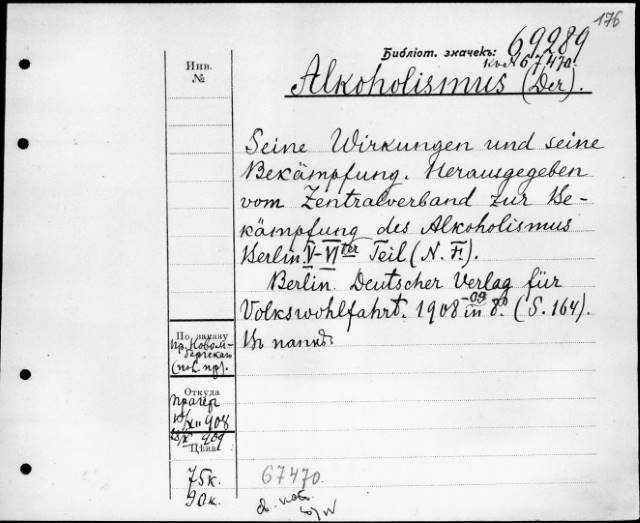 176
Библіот. значекъ: 69289
къ № 67470.
Инв. №
Alkoholismus (Der).
Seine Wirkungen und seine
Bekämpfung. Herausgegeben
vom Zentralverband zur Be-
kämpfung des Alkoholismus
Berlin. V-VI ter Teil (N. F.).
Berlin. Deutscher Verlag für
Volkswohlfahrt. 1908-09 in 8º. (S. 164).
Въ папкѣ.
По заказу
пр. Новом-
бергскаго
Откуда
Прагер
10/XII 908
18/X 909
Цѣна
75к.
90к.
67470.